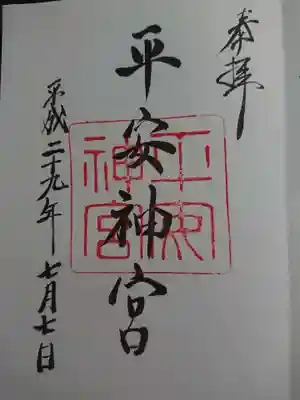 奉拝
平安神宮
平安神宮
平成二十九年 七月七日